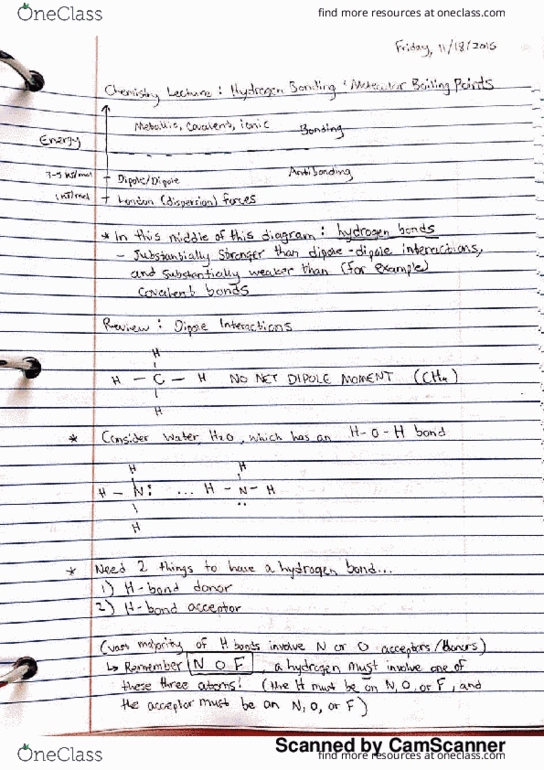 OneClass
find more resources at oneclass.com
Friday, 11/18/2015
Chemistry Lecture : Hydrogen Bonding + Molecular Boiling Points
Metallic, Covalent, ionic Bonding
Energy
Antibonding
Dipole/Dipole
London (dispersion) forces
* In this middle of this diagram : hydrogen bonds
- Substantially stronger than dipole-dipole interactions,
and substantially weaker than (for example)
Covalent bonds
Review : Dipole Interactions
H
H - C - H NO NET DIPOLE MOMENT (CH4)
H
* Consider water H2O, which has an H-O-H bond
H H
H - N: ... H - N - H
H
* Need 2 things to have a hydrogen bond...
1) H-bond donor
2) H-bond acceptor
(vast majority of H bonds involve N or O acceptors/donors)
↳ Remember N O F, a hydrogen must involve one of
these three atoms! (the H must be on N, O, or F, and
the acceptor must be on N, O, or F)
Scanned by CamScanner
OneClass
find more resources at oneclass.com